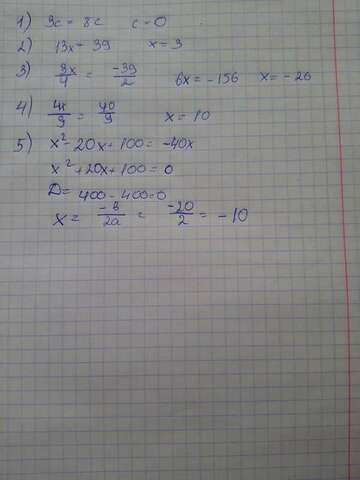 1) 9c = 8c c = 0
2) 13x = 39 x = 3
3) 3x/4 = -39/2 6x = -156 x = -26
4) 4x/9 = 40/9 x = 10
5) x² - 20x + 100 = -40x
x² + 20x + 100 = 0
D = 400 - 400 = 0
x = -b/2a = -20/2 = -10